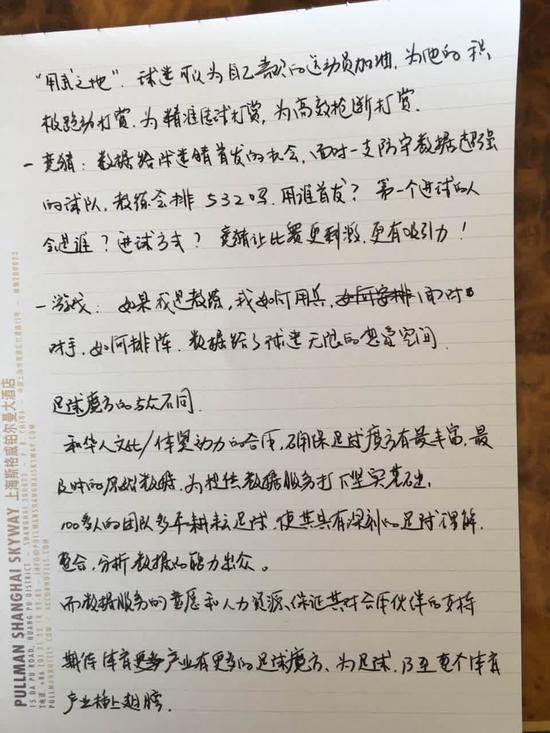 "用武之地"。球迷可以为自己喜欢的运动员加油,为他的积
极跑动打赏,为精准传球打赏,为高效抢断打赏.
- 竞猜:数据给球迷猜首发的机会,面对一支防守数据超强
的球队,教练会排 532吗,用谁首发?第一个进球的人
会是谁?进球方式?竞猜让比赛更刺激,更有吸引力!
- 游戏:如果我是教练,我如何用兵,如何安排,面对
对手,如何排阵.数据给了球迷无限的想象空间.
足球魔方的与众不同.
和华人文化/体奥动力的合作,确保足球魔方有最丰富、最
及时的原始数据,为提供数据服务打下坚实基础;
100多人的团队多年耕耘足球,使其具有深刻的足球理解,
整合,分析数据的能力出众。
而数据服务的意愿和人力资源、保证其对合作伙伴的支持
期待体育产业有更多的足球魔方、为足球,乃至整个体育
产业插上翅膀.
PULLMAN SHANGHAI SKYWAY 上海斯格威铂尔曼大酒店
15 DA PU ROAD, HUANG PU DISTRICT